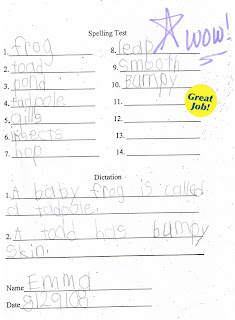 Spelling Test
1. frog
2. toad
3. pond
4. tadpole
5. gills
6. insects
7. hop
8. leap
9. smooth
10. bumpy
11.
12.
13.
14.
WOW!
Great Job!
Dictation
1. A baby frog is called
a tadpole.
2. A toad has bumpy
skin.
Name Emma
Date 8/29/08